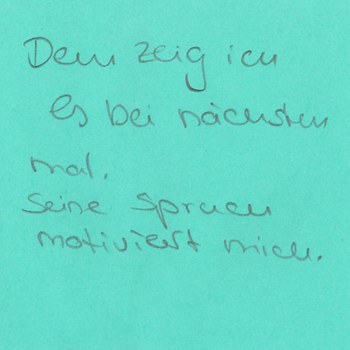 Dem zeig ich
es bei nächsten
mal.
Seine Spruch
motiviert mich.